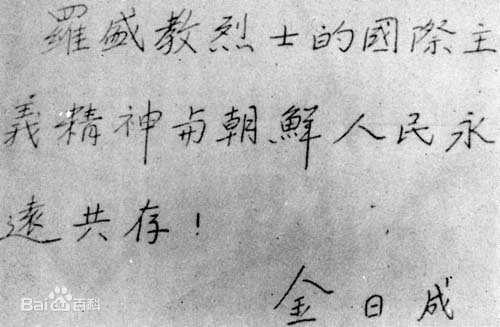 羅盛教烈士的國際主
義精神与朝鮮人民永
遠共存！
金日成
Bai百科